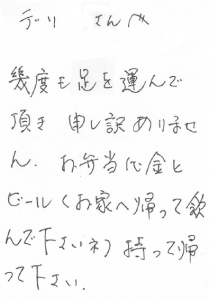 デリ さんへ
幾度も足を運んで
頂き 申し訳ありませ
ん. お弁当代金と
ビール(お家へ帰って飲
んで下さいネ)持って帰
って下さい.